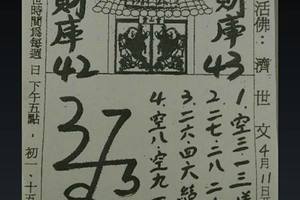 活佛：濟世文
4月11日
財庫
43
財庫
42
1.空三一三
2.二七.二八.二
3.二六.四六結
4.空八.空九
37
3
世時間爲每週 日 下午五點，初一、十五